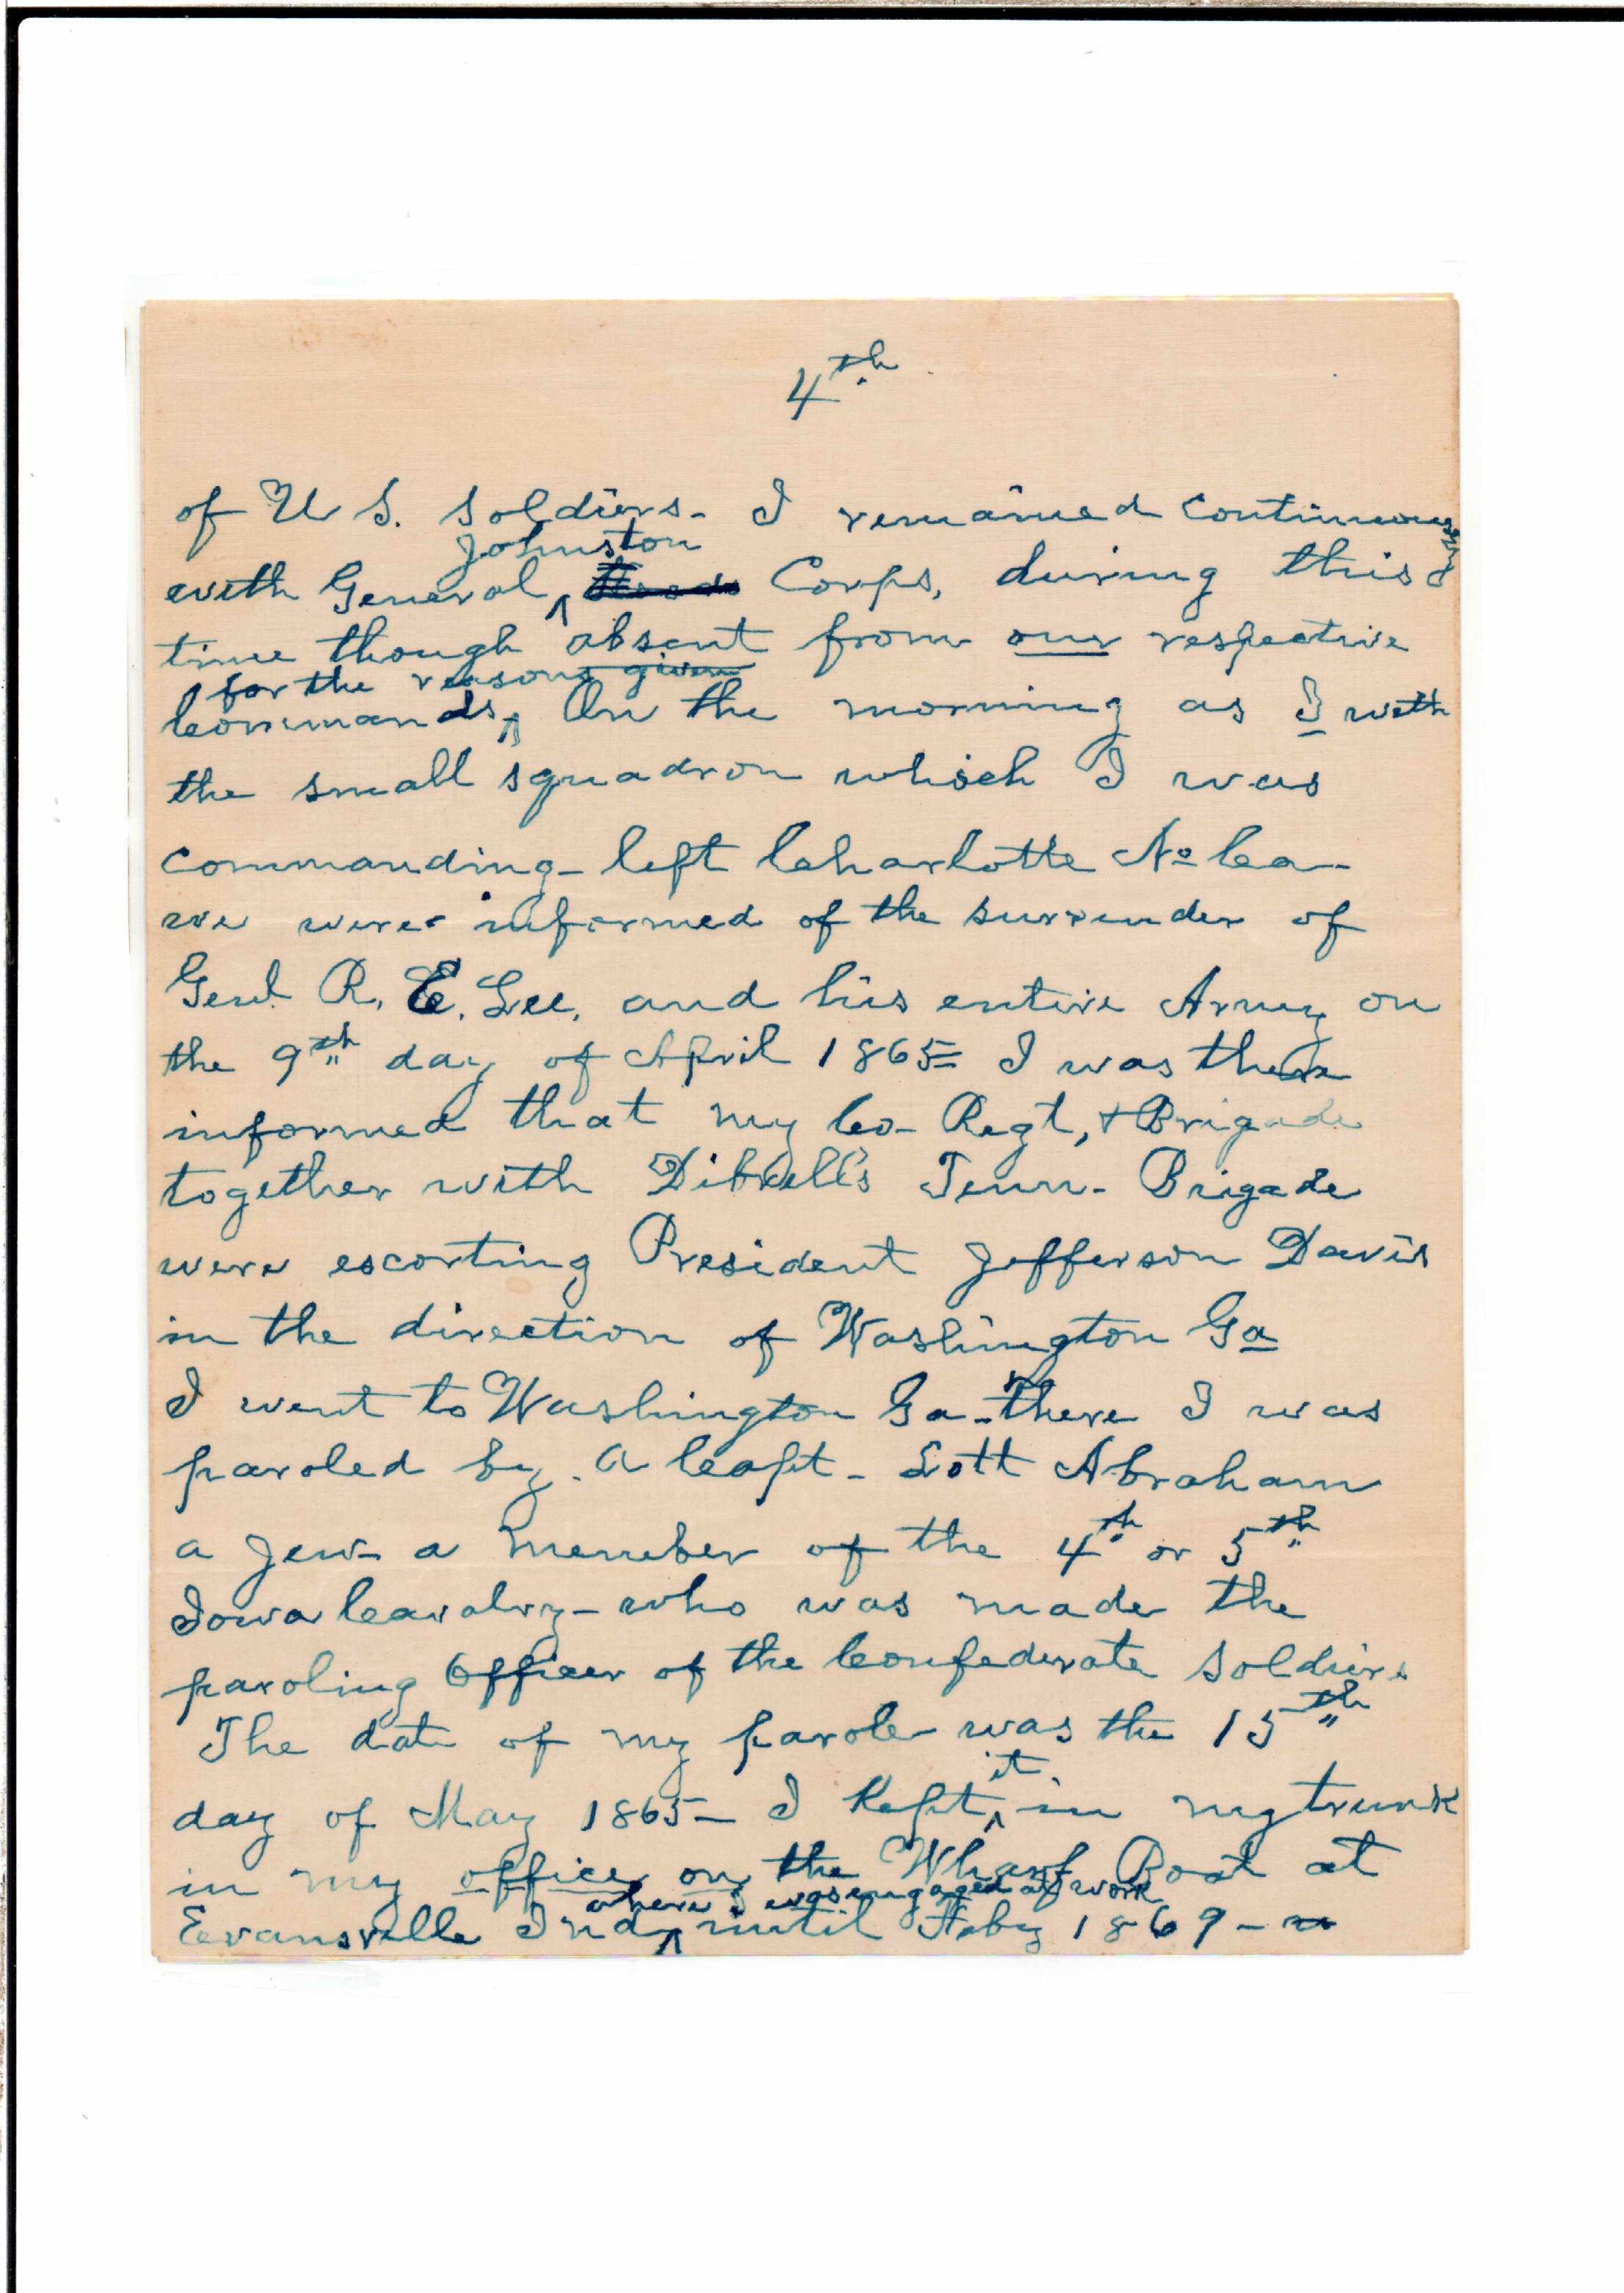 4th
of U S. Soldiers - I remained continuously
with General ^ Johnston Corps, during this
time though absent from our respective
Commands, ^ for the reasons given On the morning as I with
the small squadron which I was
commanding - left Charlotte No Ca -
we were informed of the surrender of
Genl. R. E. Lee, and his entire Army on
the 9th day of April 1865 = I was there
informed that my Co - Regt, + Brigade
together with Dibrell's Tenn - Brigade
were escorting President Jefferson Davis
in the direction of Washington Ga
I went to Washington Ga - there I was
paroled by a Capt - Lott Abraham
a Jew - a member of the 4th or 5th
Iowa Cavalry - who was made the
paroling Officer of the Confederate Soldiers
The date of my parole was the 15th
day of May 1865 - I Kept ^ it in my trunk
in my office on the Wharf Boat at
Evansville Ind, ^ where I was engaged at work until Feby 1869 -